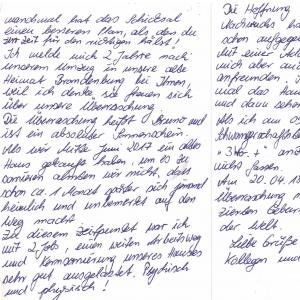 manchmal hat das Schicksal
einen besseren Plan, als den du
zur Zeit für den richtigen hältst!
Ich melde mich 2 Jahre nach
unserem Umzug in unsere alte
Heimat Brandenburg bei Ihnen,
weil ich denke sie freuen sich
über unsere Überraschung.
Die Überraschung heißt Bruno und
ist ein absoluter Sonnenschein.
Als wir Mitte Juni 2017 ein altes
Haus gekauft haben, um es zu
sanieren ahnten wir nicht, dass
schon ca. 1 Monat später sich jemand
heimlich und unbemerkt auf den
Weg macht.
Zu diesem Zeitpunkt war ich
mit 2 Jobs, einen weiten Arbeitsweg
und Kernsanierung unseres Hauses
sehr gut ausgelastet. Psychisch
und physisch!
Die Hoffnung
Nachwuchs
schon aufgege
mit einer
mich aber
anfreunden
mal das Haus
und davu sehr
Als ich am
Schwangerschafts
"3+"
nicht fassen.
Am 20.04.18
Überraschung
ziersten
der Welt.
Liebe Grüße
Kollegen und